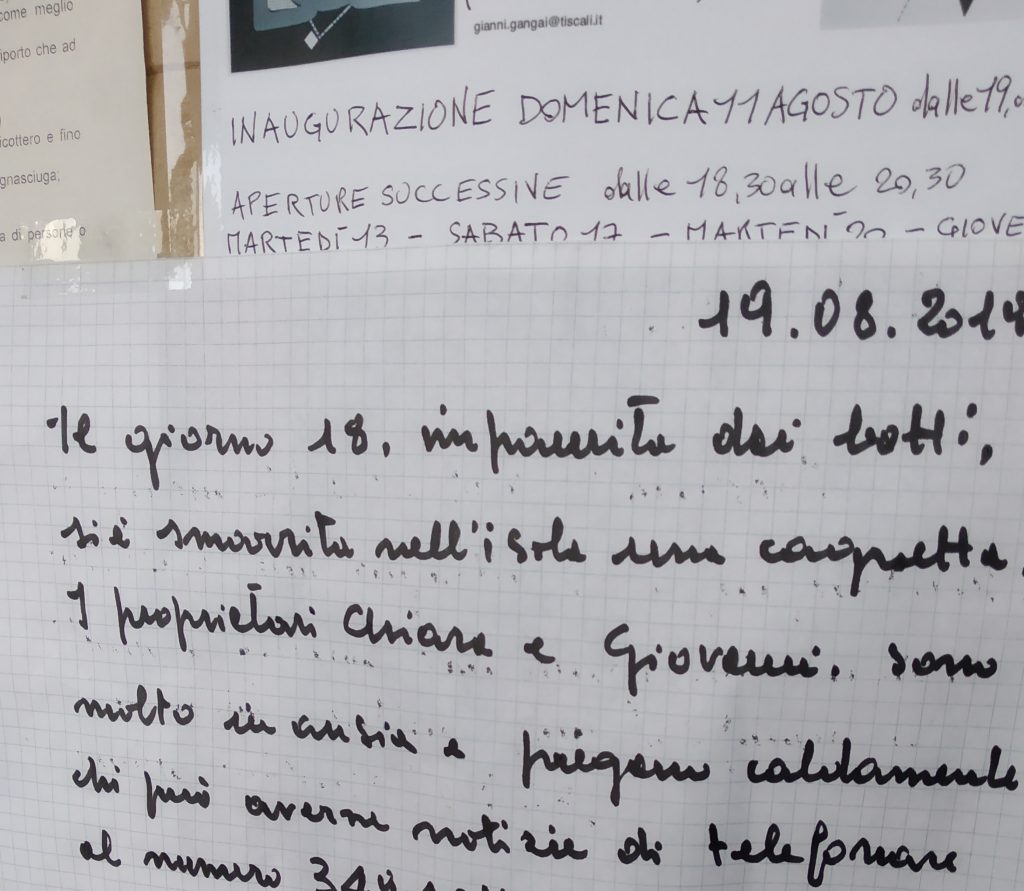 come meglio
iporto che ad
icottero e fino
gnasciuga;
a di persone o
gianni.gangai@tiscali.it
INAUGURAZIONE DOMENICA 11 AGOSTO dalle 19,0
APERTURE SUCCESSIVE dalle 18,30 alle 20,30
MARTEDÌ 13 - SABATO 17 - MARTEDÌ 20 - GIOVE
19.08.201
Il giorno 18, impaurita dai botti,
si è smarrita nell'isola una cagnetta.
I proprietari Chiara e Giovanni, sono
molto in ansia e pregano caldamente
chi può averne notizie di telefonare
al numero 34